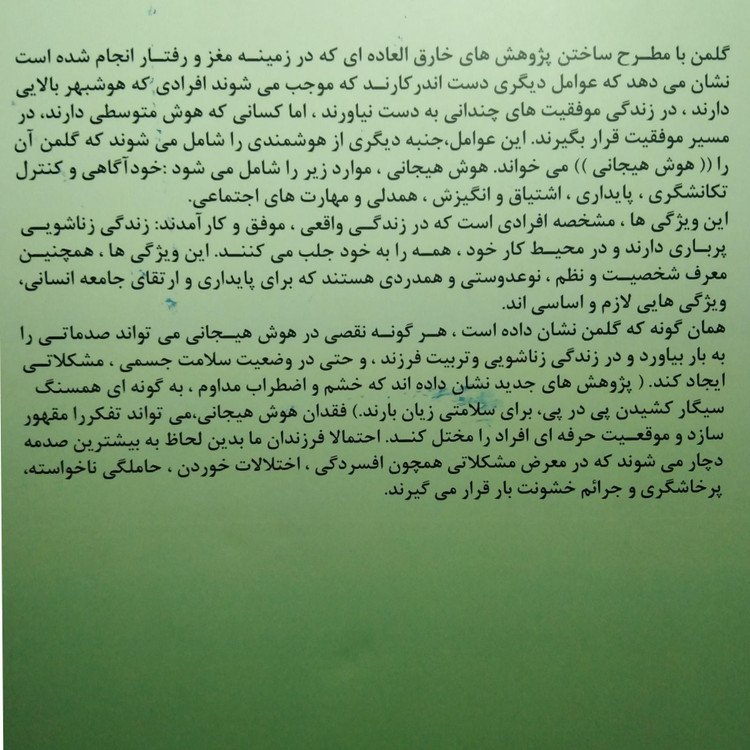 گلمن با مطرح ساختن پژوهش های خارق العاده ای که در زمینه مغز و رفتار انجام شده است
نشان می دهد که عوامل دیگری دست اندرکارند که موجب می شوند افرادی که هوشبهر بالایی
دارند ، در زندگی موفقیت های چندانی به دست نیاورند ، اما کسانی که هوش متوسطی دارند، در
مسیر موفقیت قرار بگیرند. این عوامل،جنبه دیگری از هوشمندی را شامل می شوند که گلمن آن
را (( هوش هیجانی )) می خواند. هوش هیجانی ، موارد زیر را شامل می شود :خودآگاهی و کنترل
تکانشگری ، پایداری ، اشتیاق و انگیزش ، همدلی و مهارت های اجتماعی.
این ویژگی ها ، مشخصه افرادی است که در زندگی واقعی ، موفق و کارآمدند: زندگی زناشویی
پرباری دارند و در محیط کار خود ، همه را به خود جلب می کنند. این ویژگی ها ، همچنین
معرف شخصیت و نظم ، نوعدوستی و همدردی هستند که برای پایداری و ارتقای جامعه انسانی،
ویژگی هایی لازم و اساسی اند.
همان گونه که گلمن نشان داده است ، هر گونه نقصی در هوش هیجانی می تواند صدماتی را
به بار بیاورد و در زندگی زناشویی وتربیت فرزند ، و حتی در وضعیت سلامت جسمی ، مشکلاتی
ایجاد کند. ( پژوهش های جدید نشان داده اند که خشم و اضطراب مداوم ، به گونه ای همسنگ
سیگار کشیدن پی در پی، برای سلامتی زیان بارند.) فقدان هوش هیجانی،می تواند تفکررا مقهور
سازد و موقعیت حرفه ای افراد را مختل کند. احتمالا فرزندان ما بدین لحاظ به بیشترین صدمه
دچار می شوند که در معرض مشکلاتی همچون افسردگی ، اختلالات خوردن ، حاملگی ناخواسته،
پرخاشگری و جرائم خشونت بار قرار می گیرند.